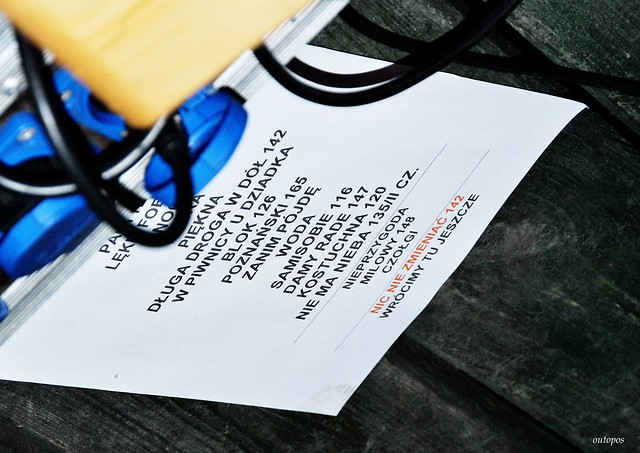 PIĘKNA
DŁUGA DROGA W DÓŁ 142
W PIWNICY U DZIADKA
BLOK 126
POZNAŃSKI 165
ZANIM PÓJDĘ
WODA
SAMISOBIE 116
DAMY RADE 147
KOSTUCHNA 120
NIE MA NIEBA 135/II CZ.
NIEPRZYGODA
MILOWY 148
CZOŁGI
NIC NIE ZMIENIAĆ 142
WRÓCIMY TU JESZCZE
outopos